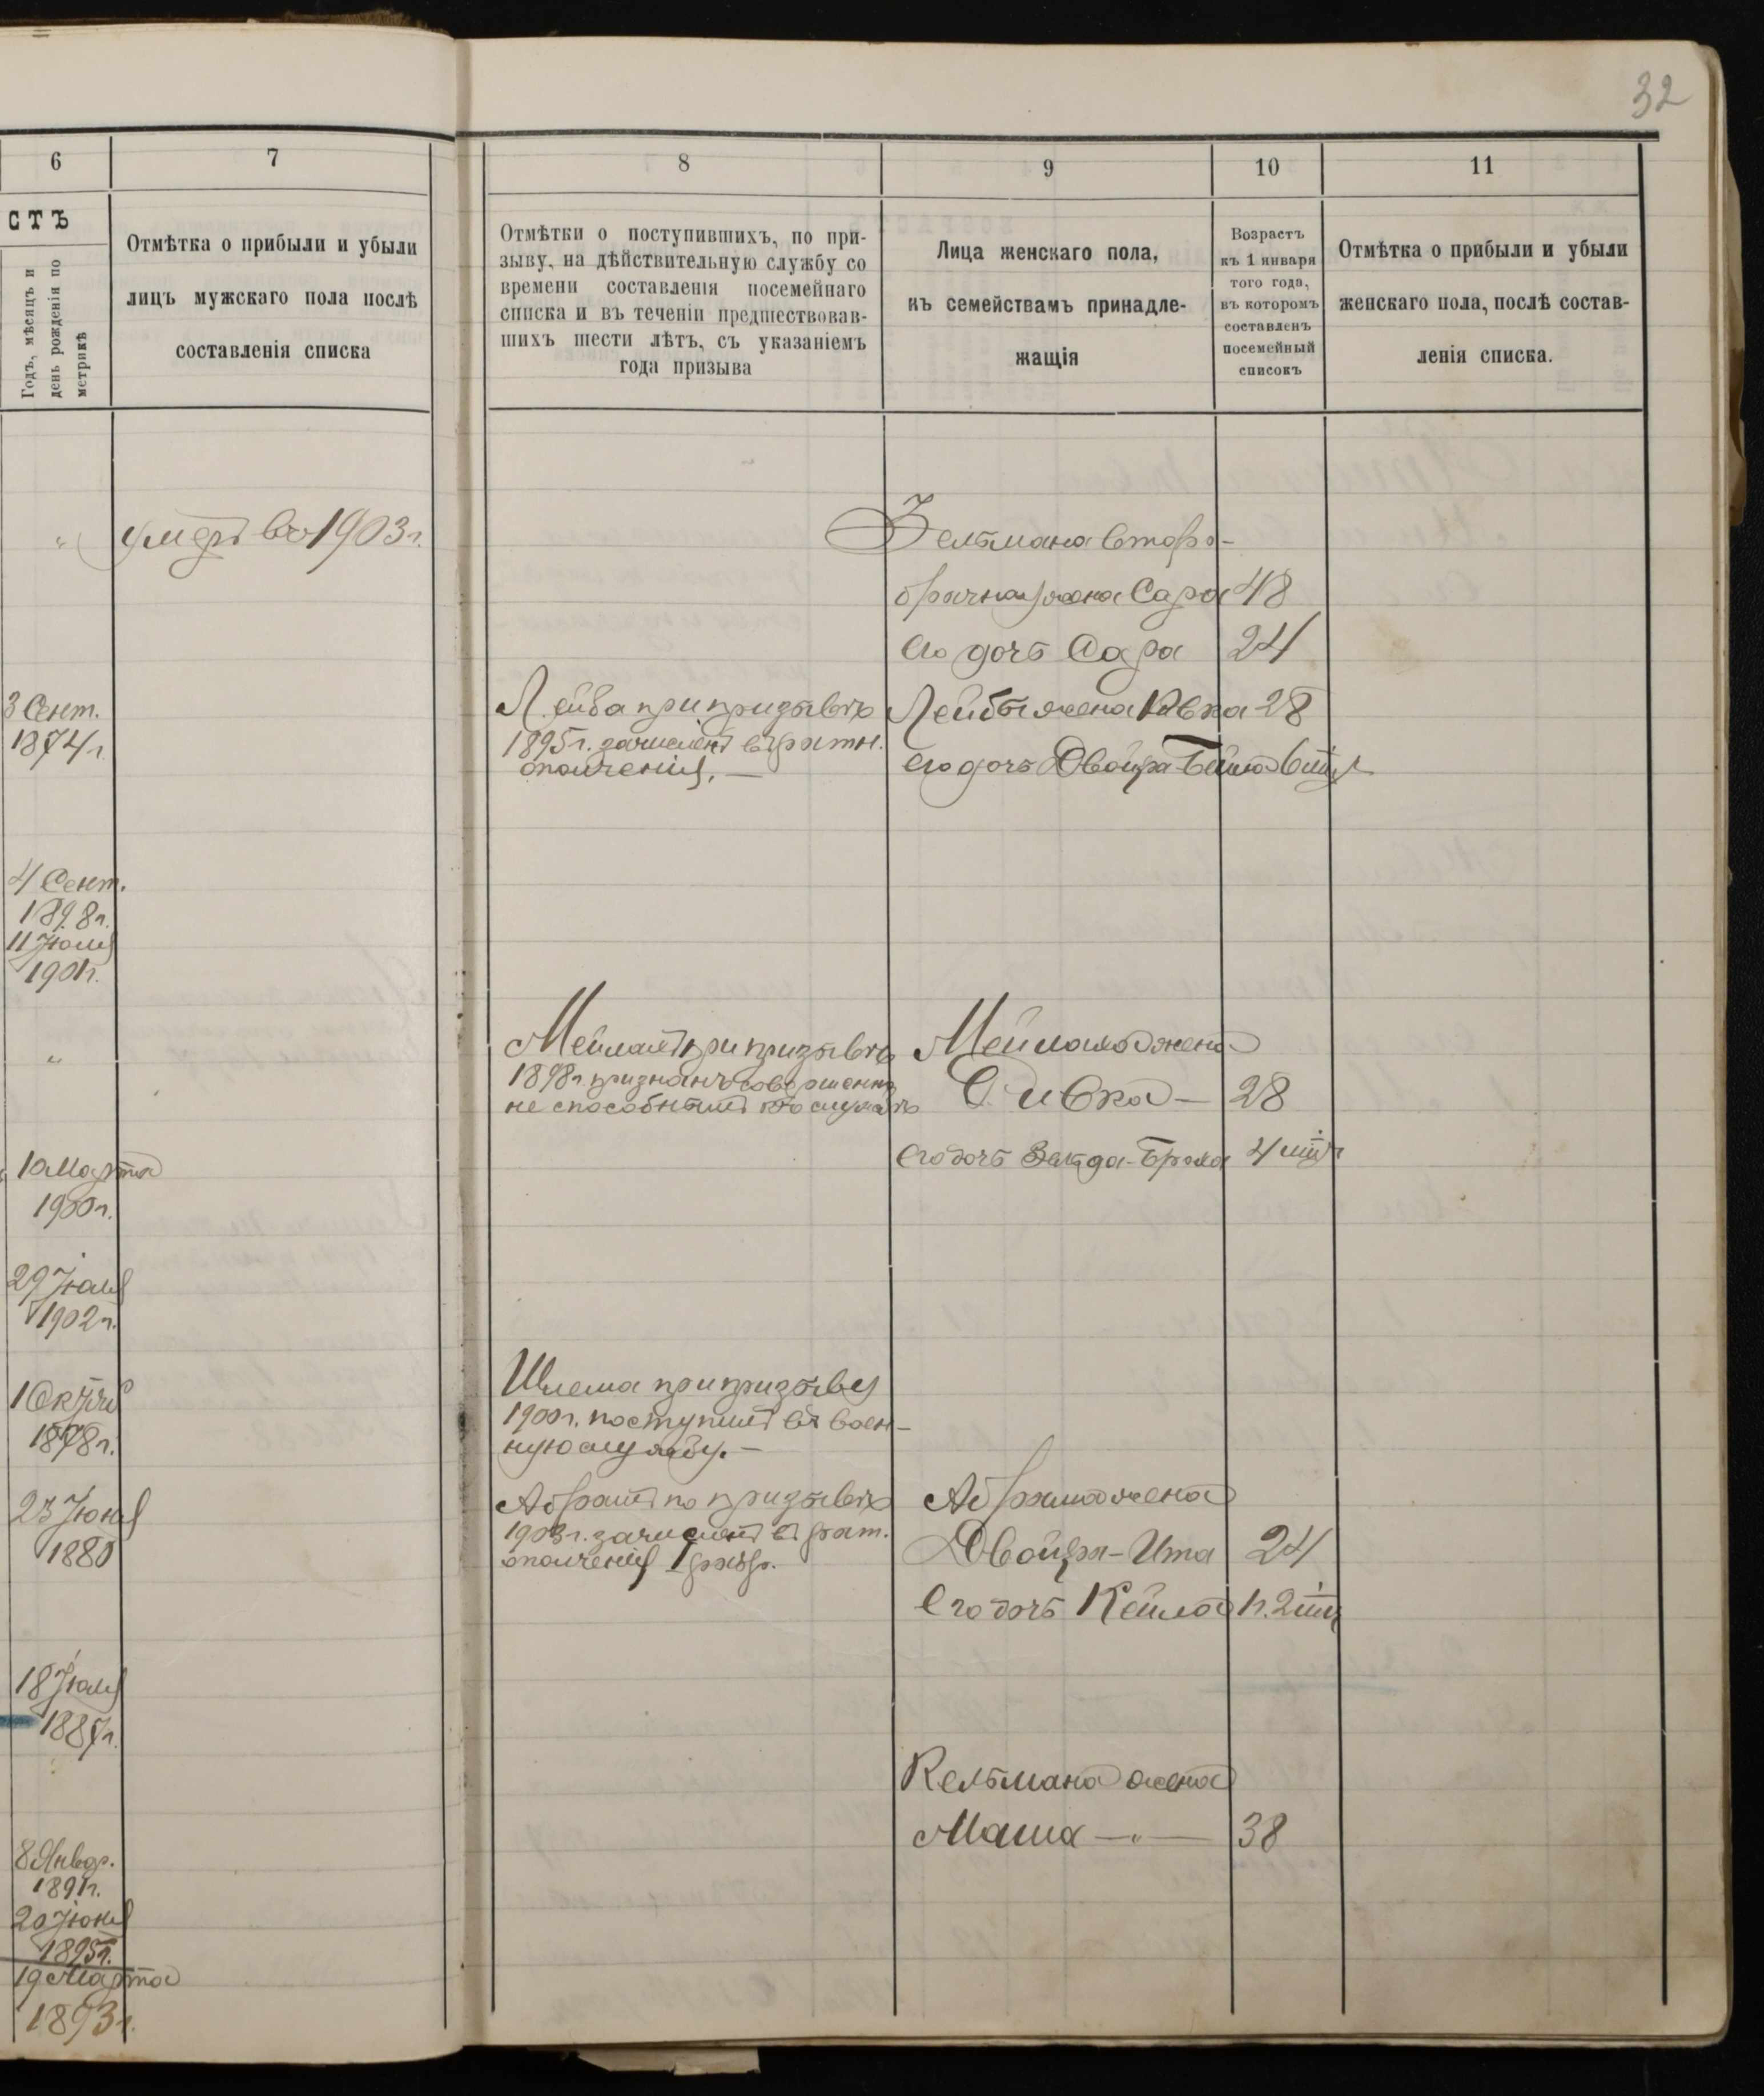 32
6
7
8
9
10
11
СТЪ
Годъ, мѣсяцъ и
день рожденія по
метрикѣ
Отмѣтка о прибыли и убыли
лицъ мужскаго пола послѣ
составленія списка
Отмѣтки о поступившихъ, по при-
зыву, на дѣйствительную службу со
времени составленія посемейнаго
списка и въ теченіи предшествовав-
шихъ шести лѣтъ, съ указаніемъ
года призыва
Лица женскаго пола,
къ семействамъ принадле-
жащія
Возрастъ
къ 1 января
того года,
въ которомъ
составленъ
посемейный
списокъ
Отмѣтка о прибыли и убыли
женскаго пола, послѣ состав-
ленія списка.
„ умеръ въ 1903 г.
Зельмана второ-
брачная жена Сара 48
его дочь Сара 24
3 Сент.
1874 г.
Лейба при призывѣ
1895 г. зачисленъ въ ратн.
ополченія. —
Лейбы жена Ривка 28
его дочь Двойра-Бейла 6
4 Сент.
1898 г.
11 Іюля
1901 г.
„
Мейлахъ при призывѣ
1898 г. признанъ совершенно
не способнымъ къ службѣ
Мейлаха жена
Ривка — 28
его дочь Зельда-Брайна 4
10 Марта
1900 г.
29 Іюля
1902 г.
1 Октяб
1878 г.
Шлема при призыве
1900 г. поступилъ въ воен-
ную службу. —
23 Іюня
1880
Абрамъ по призывѣ
1903 г. зачисленъ въ рат.
ополченія I разр.
Абрама жена
Двойра-Ита 24
Его дочь Кейла 1 г. 2
18 Іюля
1887 г.
Кельмана жена
Маша —„— 38
8 Январ.
1891 г.
20 Іюня
1895 г.
19 Марта
1893 г.